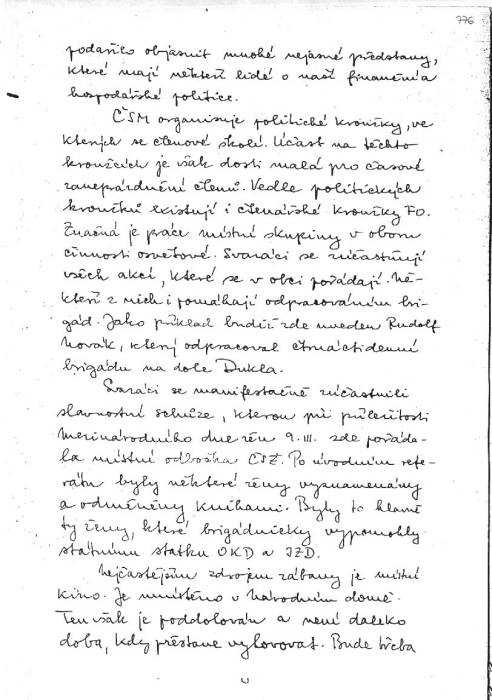 776
podařilo objasnit mnohé nejasné představy,
které mají někteří lidé o naší finanční a
hospodářské politice.
ČSM organisuje politické kroužky, ve
kterých se členové školí. Účast na těchto
kroužcích je však dosti malá pro časové
zaneprázdnění členů. Vedle politických
kroužků existují i čtenářské kroužky FO.
Značná je práce místní skupiny v oboru
činnosti osvětové. Svazáci se zúčastňují
všech akcí, které se v obci pořádají. Ně-
kteří z nich i pomáhají odpracováním bri-
gád. Jako příklad budiž zde uveden Rudolf
Novák, který odpracoval čtrnáctidenní
brigádu na dole Dukla.
Svazáci se manifestačně zúčastnili
slavnostní schůze, kterou při příležitosti
Mezinárodního dne žen 9.III. zde pořáda-
la místní odbočka ČSŽ. Po úvodním refe-
rátu byly některé ženy vyznamenány
a odměněny knihami. Byly to hlavně
ty ženy, které brigádnicky vypomohly
státnímu statku OKD a JZD.
Nejčastějším zdrojem zábavy je místní
kino. Je umístěno v Národním domě.
Ten však je poddolován a není daleko
doba, kdy přestane vyhovovat. Bude třeba